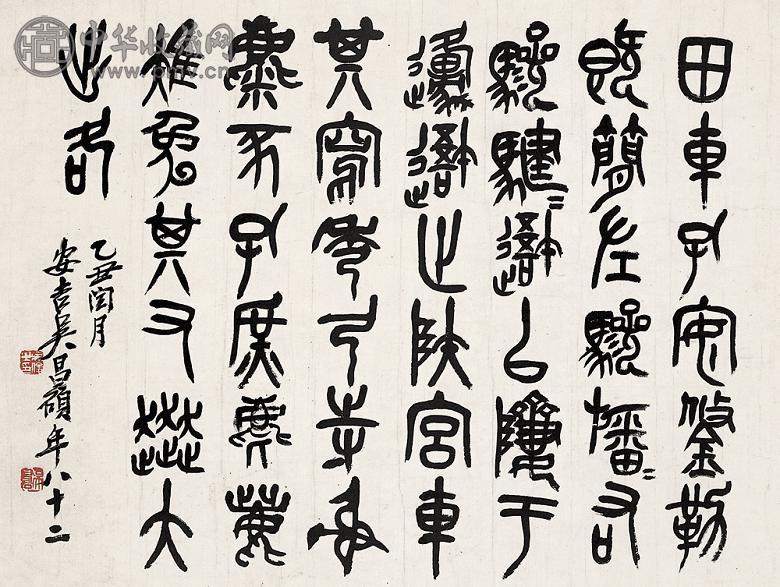 田車孔安鋚勒
既簡左驂旛=右
驂騝=䢱以隮于
邍䢱止陝宮車
其寫秀弓寺射
麋豕孔庶麀鹿
雉兔其又大
出各
乙丑閏月
安吉吳昌碩年八十二
中华收藏网